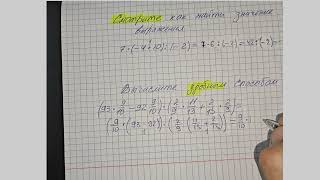 Смотрите как найти значение
выражения
7·(-4+10):(-2)=7·6:(-2)=42:(-2)=
Вычислите удобным способом
(93·9/10-92·9/10):(2/9·11/13+2/13·2/9)=
(9/10·(93-92)):(2/9·(11/13+2/13))=9/10·1